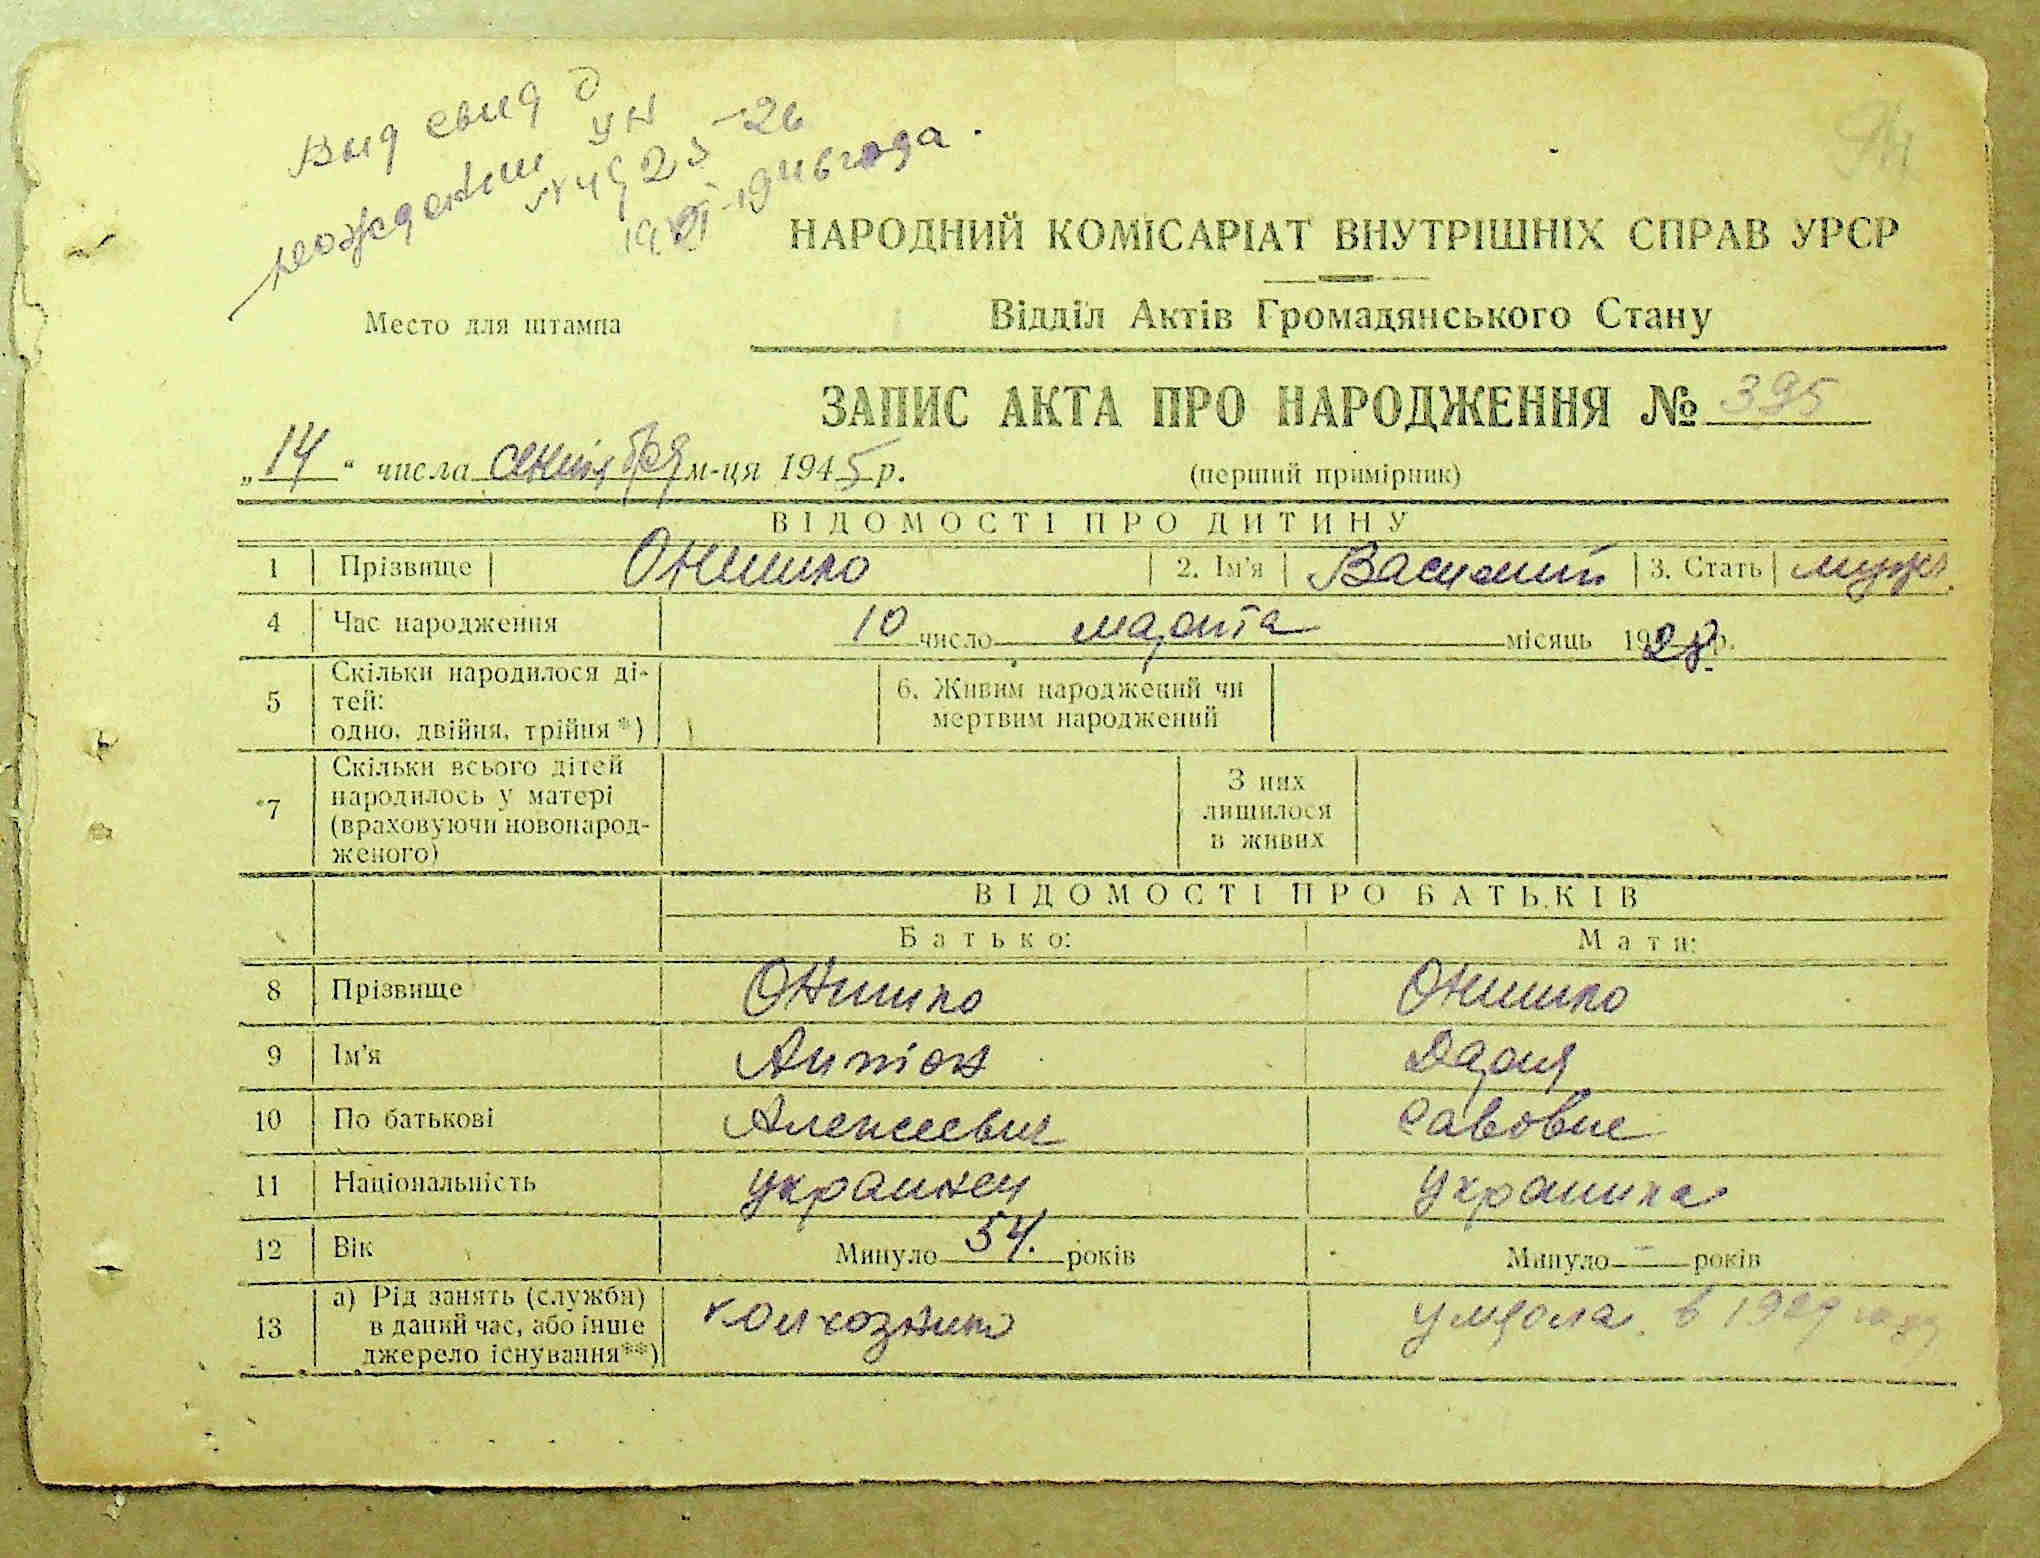 Выд свид о
рождении УН
№ 492526
19 VI 1946 года.
94
НАРОДНИЙ КОМІСАРІАТ ВНУТРІШНІХ СПРАВ УРСР
Место для штампа
Відділ Актів Громадянського Стану
ЗАПИС АКТА ПРО НАРОДЖЕННЯ № 395
„14“ числа сентября м-ця 1945 р.
(перший примірник)
ВІДОМОСТІ ПРО ДИТИНУ
1 Прізвище Онишко 2. Ім'я Василий 3. Стать мужс.
4 Час народження 10 число марта місяць 1928 р.
5 Скільки народилося ді-
тей:
одно, двійня, трійня *)
6. Живим народжений чи
мертвим народжений
7 Скільки всього дітей
народилось у матері
(враховуючи новонарод-
женого)
З них
лишилося
в живих
ВІДОМОСТІ ПРО БАТЬКІВ
Батько: Мати:
8 Прізвище Онишко Онишко
9 Ім'я Антон Дария
10 По батькові Алексеевич Савовне
11 Національність украинец украинка
12 Вік Минуло 54. років Минуло – років
13 а) Рід занять (служби)
в даний час, або інше
джерело існування**)
колхозник умерла в 1929 году